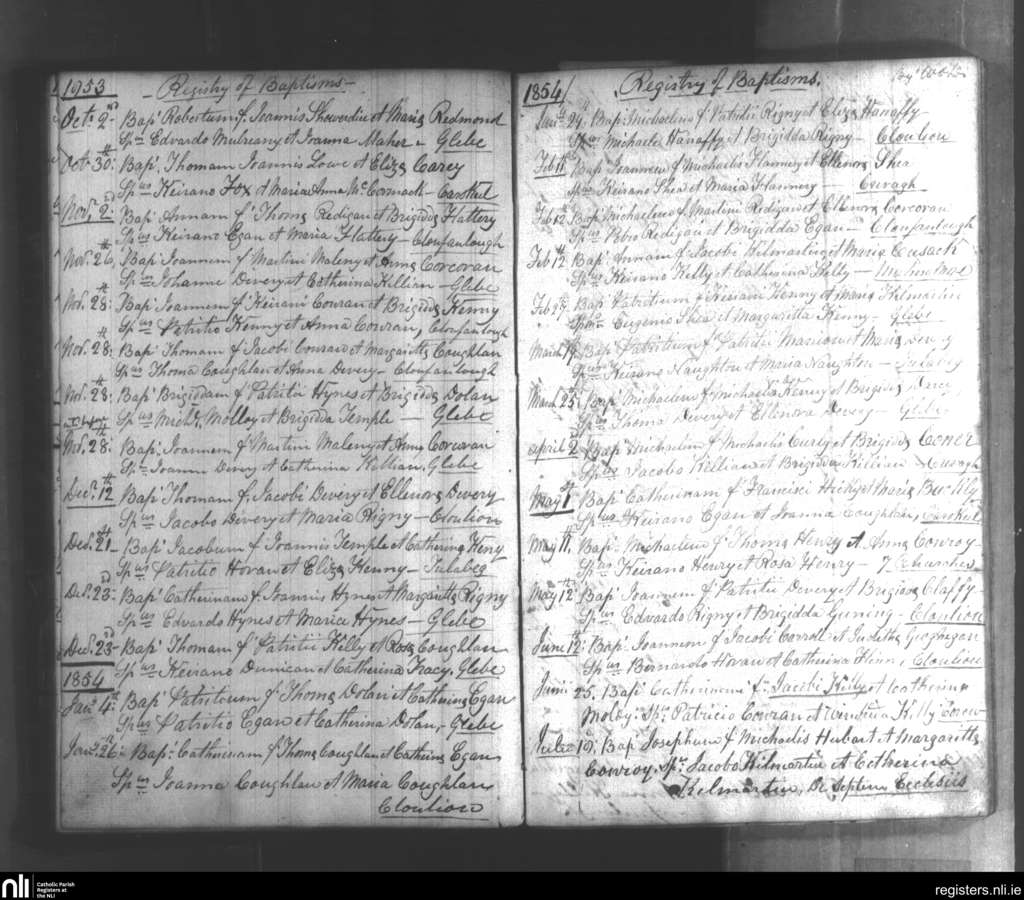 1953 Registry of Baptisms
Oct. 2nd Bap. Robertum f. Joannis Showerdin et Maria Redmond
Sp. Edvardo Mulreany et Joanna Maher - Glebe
Oct 30th: Bapt. Thomam Joannis Lowe et Eliza Carey
Spus Keirano Fox et Maria Anna McCormack - Cashel
Novr. 2d Bapt Annam f. Thoms Redigan et Brigidda Flattery
Spus Keirano Egan et Maria Flattery - Clonfanlough
Nov. 26th, Bapt Joannem f. Martini Maleny et Anna Corcoran
Sp. Johanne Devery et Catherina Killian - Glebe
Nov. 28: Bapt Joannem f. Keirani Conran et Brigidda Kenny
Spus Patritio Kenny et Anna Conran, Clonfanlough
Nov. 28th: Bapt Thomam f. Jacobi Conran et Margaritta Coughlan
Spus Thoma Coughlan et Anna Devery - Clonfanlough
Nov. 28th: Bapt Brigiddam f. Patritii Hynes et Brigidda Dolan
Spus Michl. Molloy et Brigidda Temple - Glebe
Nov. 28th: Bapt. Joannem f. Martini Maleny et Anna Corcoran
Sp. Joanne Devery et Catherina Killian, Glebe
Decr. 12th Bapt Thomam f. Jacobi Devery et Ellenora Devery
Spus Jacobo Devery et Maria Rigny - Clonlion
Dec. 21st - Bapt Jacobum f. Joannis Temple et Catherina Heny
Spus Patritio Horan et Eliza Kenny - Tulabeg
Dec. 23d: Bapt Catherinam f. Joannis Hynes et Margaritta Rigny
Spus Edvardo Hynes et Maria Hynes - Glebe
Dec. 23d Bapt Thomam f. Patritii Kelly et Rosa Coughlan
Spus Keirano Duincan et Catherina Tracy. Glebe
1854
Jany. 4th. Bapt Patritium f. Thoms Dolan et Catherina Egan
Spus Patritio Egan et Catherina Dolan, Glebe
Jan. 26th: Bapt. Catherinam f. Thoms Coughlan et Catherina Egan
Spus Joanna Coughlan et Maria Coughlan
Clonlion
1854 Registry of Baptisms.
Jany. 29. Bap. Michaelem f. Patritii Rigny et Eliza Hanaffy
Spus Michaele Hanaffy et Brigidda Rigny - Clonlion
Feb 11th Bap. Joannem f. Michaelis Flannery et Ellenora Shea
Spus Keirano Shea et Maria Flannery - Curragh
Feb 12 Bapt Michaelem f. Martini Redigan et Ellenora Corcoran
Spus Redigan et Brigidda Egan - Clonfanlough
Feb 12th Bapt Annam f. Jacobi Kilmartin et Maria Cusack
Spus Keirano Kelly et Catherina Kelly -
Feb 27th. Bapt Patritium f. Keirani Kenny et Maria Kilmartin
Spus Eugenio Shea et Margaritta Kenny - Glebe
March 19. Bapt Patritium f. Patritii Mannion et Maria Devery
Spus Keirano Naughton et Maria Naughton - Tulabeg
March 25. Bapt Michaelem f. Michaelis Kenny et Brigidda
Spus Thoma Devery et Ellenora Devery - Glebe
April 2 Bapt Michaelem f. Michaelis Curly et Brigidda
Spus Jacobo Killian et Brigidda Killian Curragh
May 1st Bapt Catherinam f. Francisci Hickey et Maria Buckly
Spus Keirano Egan et Joanna Coughlan, Cashel
May 11th. Bapt. Michaelem f. Thoms Henry et Anna Conroy
Spus Keirano Henry et Rosa Henry - 7 Churches
May 12th Bapt Joannem f. Patritii Devery et Brigidda Claffy
Spus Edvardo Rigny et Brigidda Guning - Clonlion
June 12th: Bapt. Joannem f. Jacobi Corroll et Juditha Geoghegan
Spus Bernardo Horan et Catherina Flinn, Clonlion
Junii 25. Bapt Catherinam f. Jacobi Kelly et Catherina
Moloy. Sp. Patricio Conran et Kelly
Julii 19. Bap. Josephum f. Michaelis Hubart et Margaritta
Conroy. Sp. Jacobo Kilmartin et Catherina
Kelmartin, De Septem Ecclesiis
nli
Catholic Parish
Registers at
the NLI
registers.nli.ie